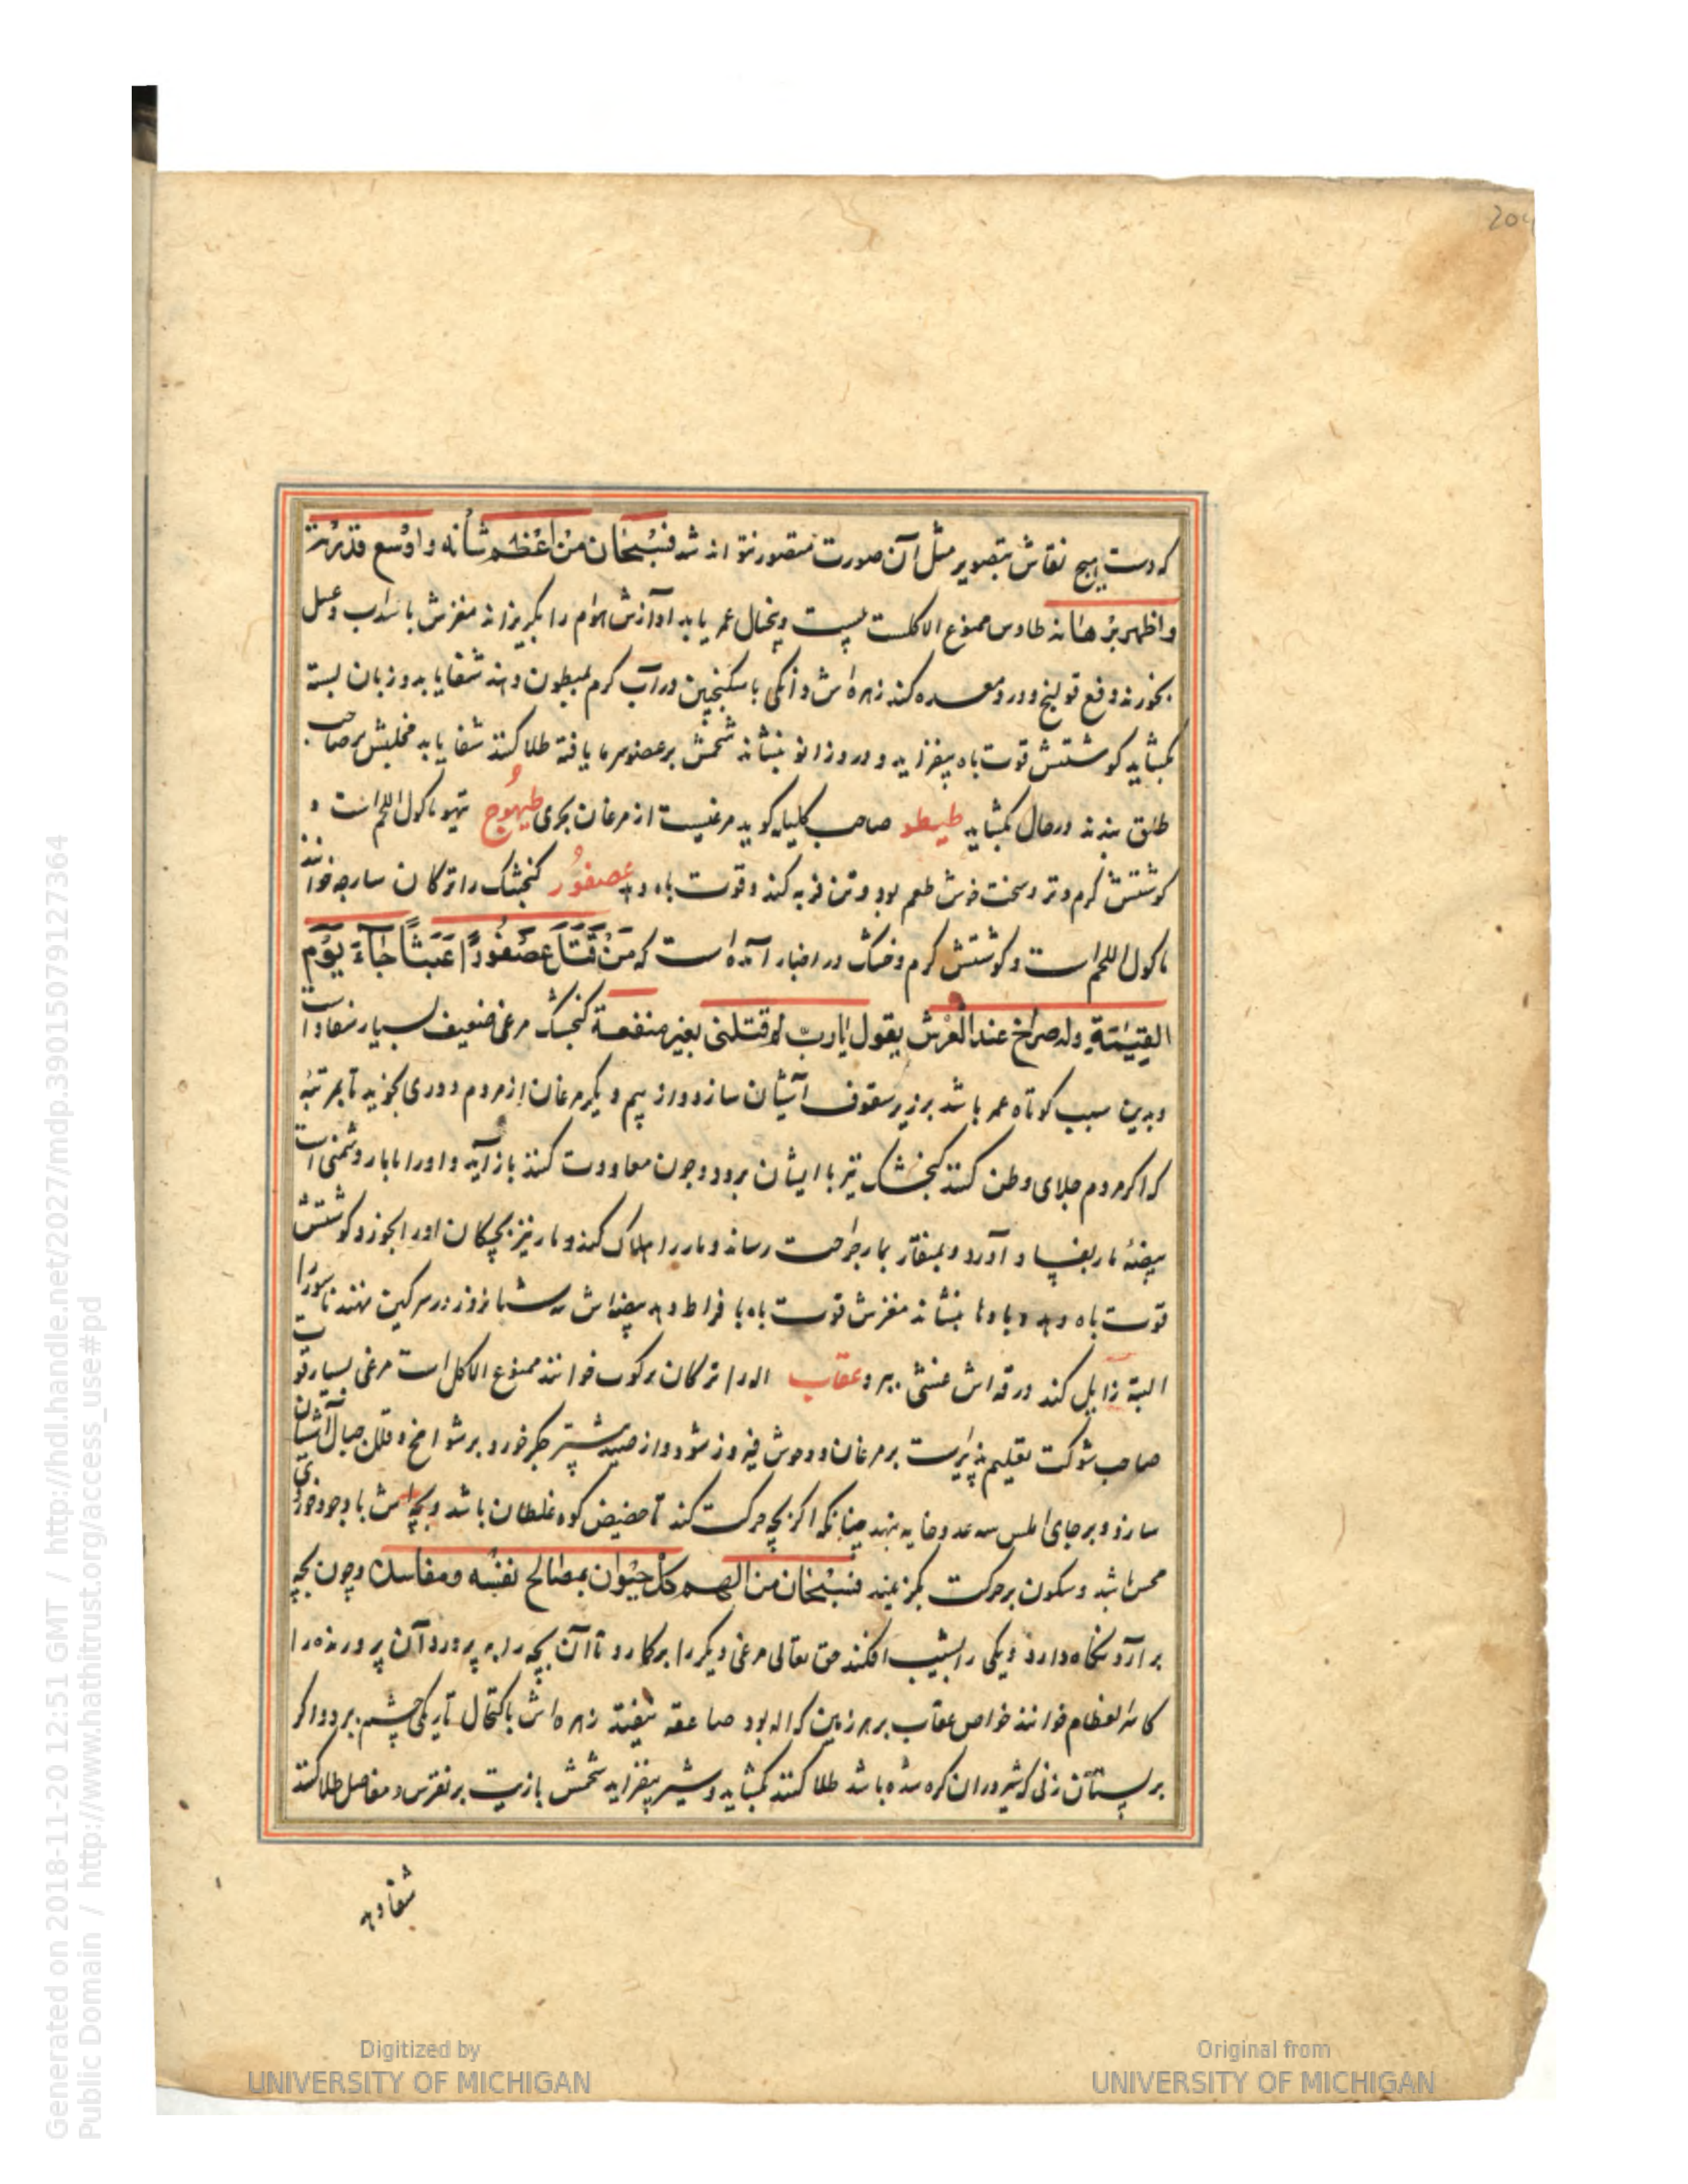 که دست هیچ نقاش بتصویر مثل آن صورت متصور نتواند شد فسبحان من اعظم شأنه و اوسع قدرته
و اظهر برهانه طاوس ممنوع الاکلست بیست و پنجسال عمر یابد آوازش هوام را بگریزاند مغزش با سداب و عسل
بخورند دفع قولنج و درد معده کند زهره‌اش دانکی با سکنجبین در آب کرم بمبطون دهند شفا یابد و زبان بسته
بکشاید کوشتش قوت باه بیفزاید و درد زانو بنشاند شحمش بر عضو سرما یافته طلا کنند شفا یابد مخلبش بر صاحب
طلق بندند در حال بکشاید طیطو صاحب کلیله کوید مرغیست از مرغان بحری طیهوج تیهو ماکول اللحم است و
کوشتش کرم و تر و سخت خوش طعم بود و تن فربه کند و قوت باه دهد عصفور کنجشک را ترکان سارجه خوانند
ماکول اللحم است و کوشتش کرم و خشک در اخبار آمده است که مَنْ قَتَلَ عصْفُورًا عَبَثًا جَاءَ یَوْم
القیٰمَةِ وله صراخ عند العرش یقول یارب لم قتلنی بغیر منفعة کنجشک مرغی ضعیف بسیار سفاد است
و بدین سبب کوتاه عمر باشد بر زیر سقوف آشیان سازد و از بیم دیکر مرغان از مردم دوری نجوید تا بمرتبهٔ
که اکر مردم جلای وطن کنند کنجشک نیز با ایشان برود و چون معاودت کنند باز آید و او را با مار دشمنی است
بیضهٔ مار بفساد آورد و بمنقار بمار جراحت رساند و مار را هلاک کند و مار نیز بچکان او را بخورد کوشتش
قوت باه دهد و بادها بنشاند مغزش قوت باه بافراط دهد بیضه‌اش سه شبانروز در سرکین نهند ناسور را
البتة زایل کند ذرقه‌اش غشی ببرد عقاب اله را ترکان برکوت خوانند ممنوع الاکل است مرغی بسیار قوت
صاحب شوکت تعلیم پذیرست بر مرغان و وحوش فیروز شود و از صید بیشتر جکر خورد و بر شوامخ و قلل جبال آشیان
سازد و بر جای املس سه عدد خایه بنهد چنانکه اکر بچه حرکت کند تا حضیض کوه غلطان باشد و بچه‌اش با وجود خوردی
محس باشد و سکون بر حرکت بکزیند فسبحان من الهم کل حیوان بمصالح نفسه و مفاسده و چون بچه
بر آرد نکاه دارد و یکی را بشیب افکند حق تعالی مرغی دیکر را برکمارد تا آن بچه را بپرورد و آن پرورنده را
کاسر العظام خوانند خواص عقاب بر هر زمین که اله بود صاعقه نیفتد زهره‌اش باکتحال تاریکی چشم ببرد و اکر
بر پستان زنی که شیر در ان کره شده باشد طلا کنند بکشاید و شیر بیفزاید شحمش بازیت بر نقرس و مفاصل طلا کنند
شفا دهد
204
Generated on 2018-11-20 12:51 GMT / http://hdl.handle.net/2027/mdp.39015079127364
Public Domain / http://www.hathitrust.org/access_use#pd
Digitized by
UNIVERSITY OF MICHIGAN
Original from
UNIVERSITY OF MICHIGAN